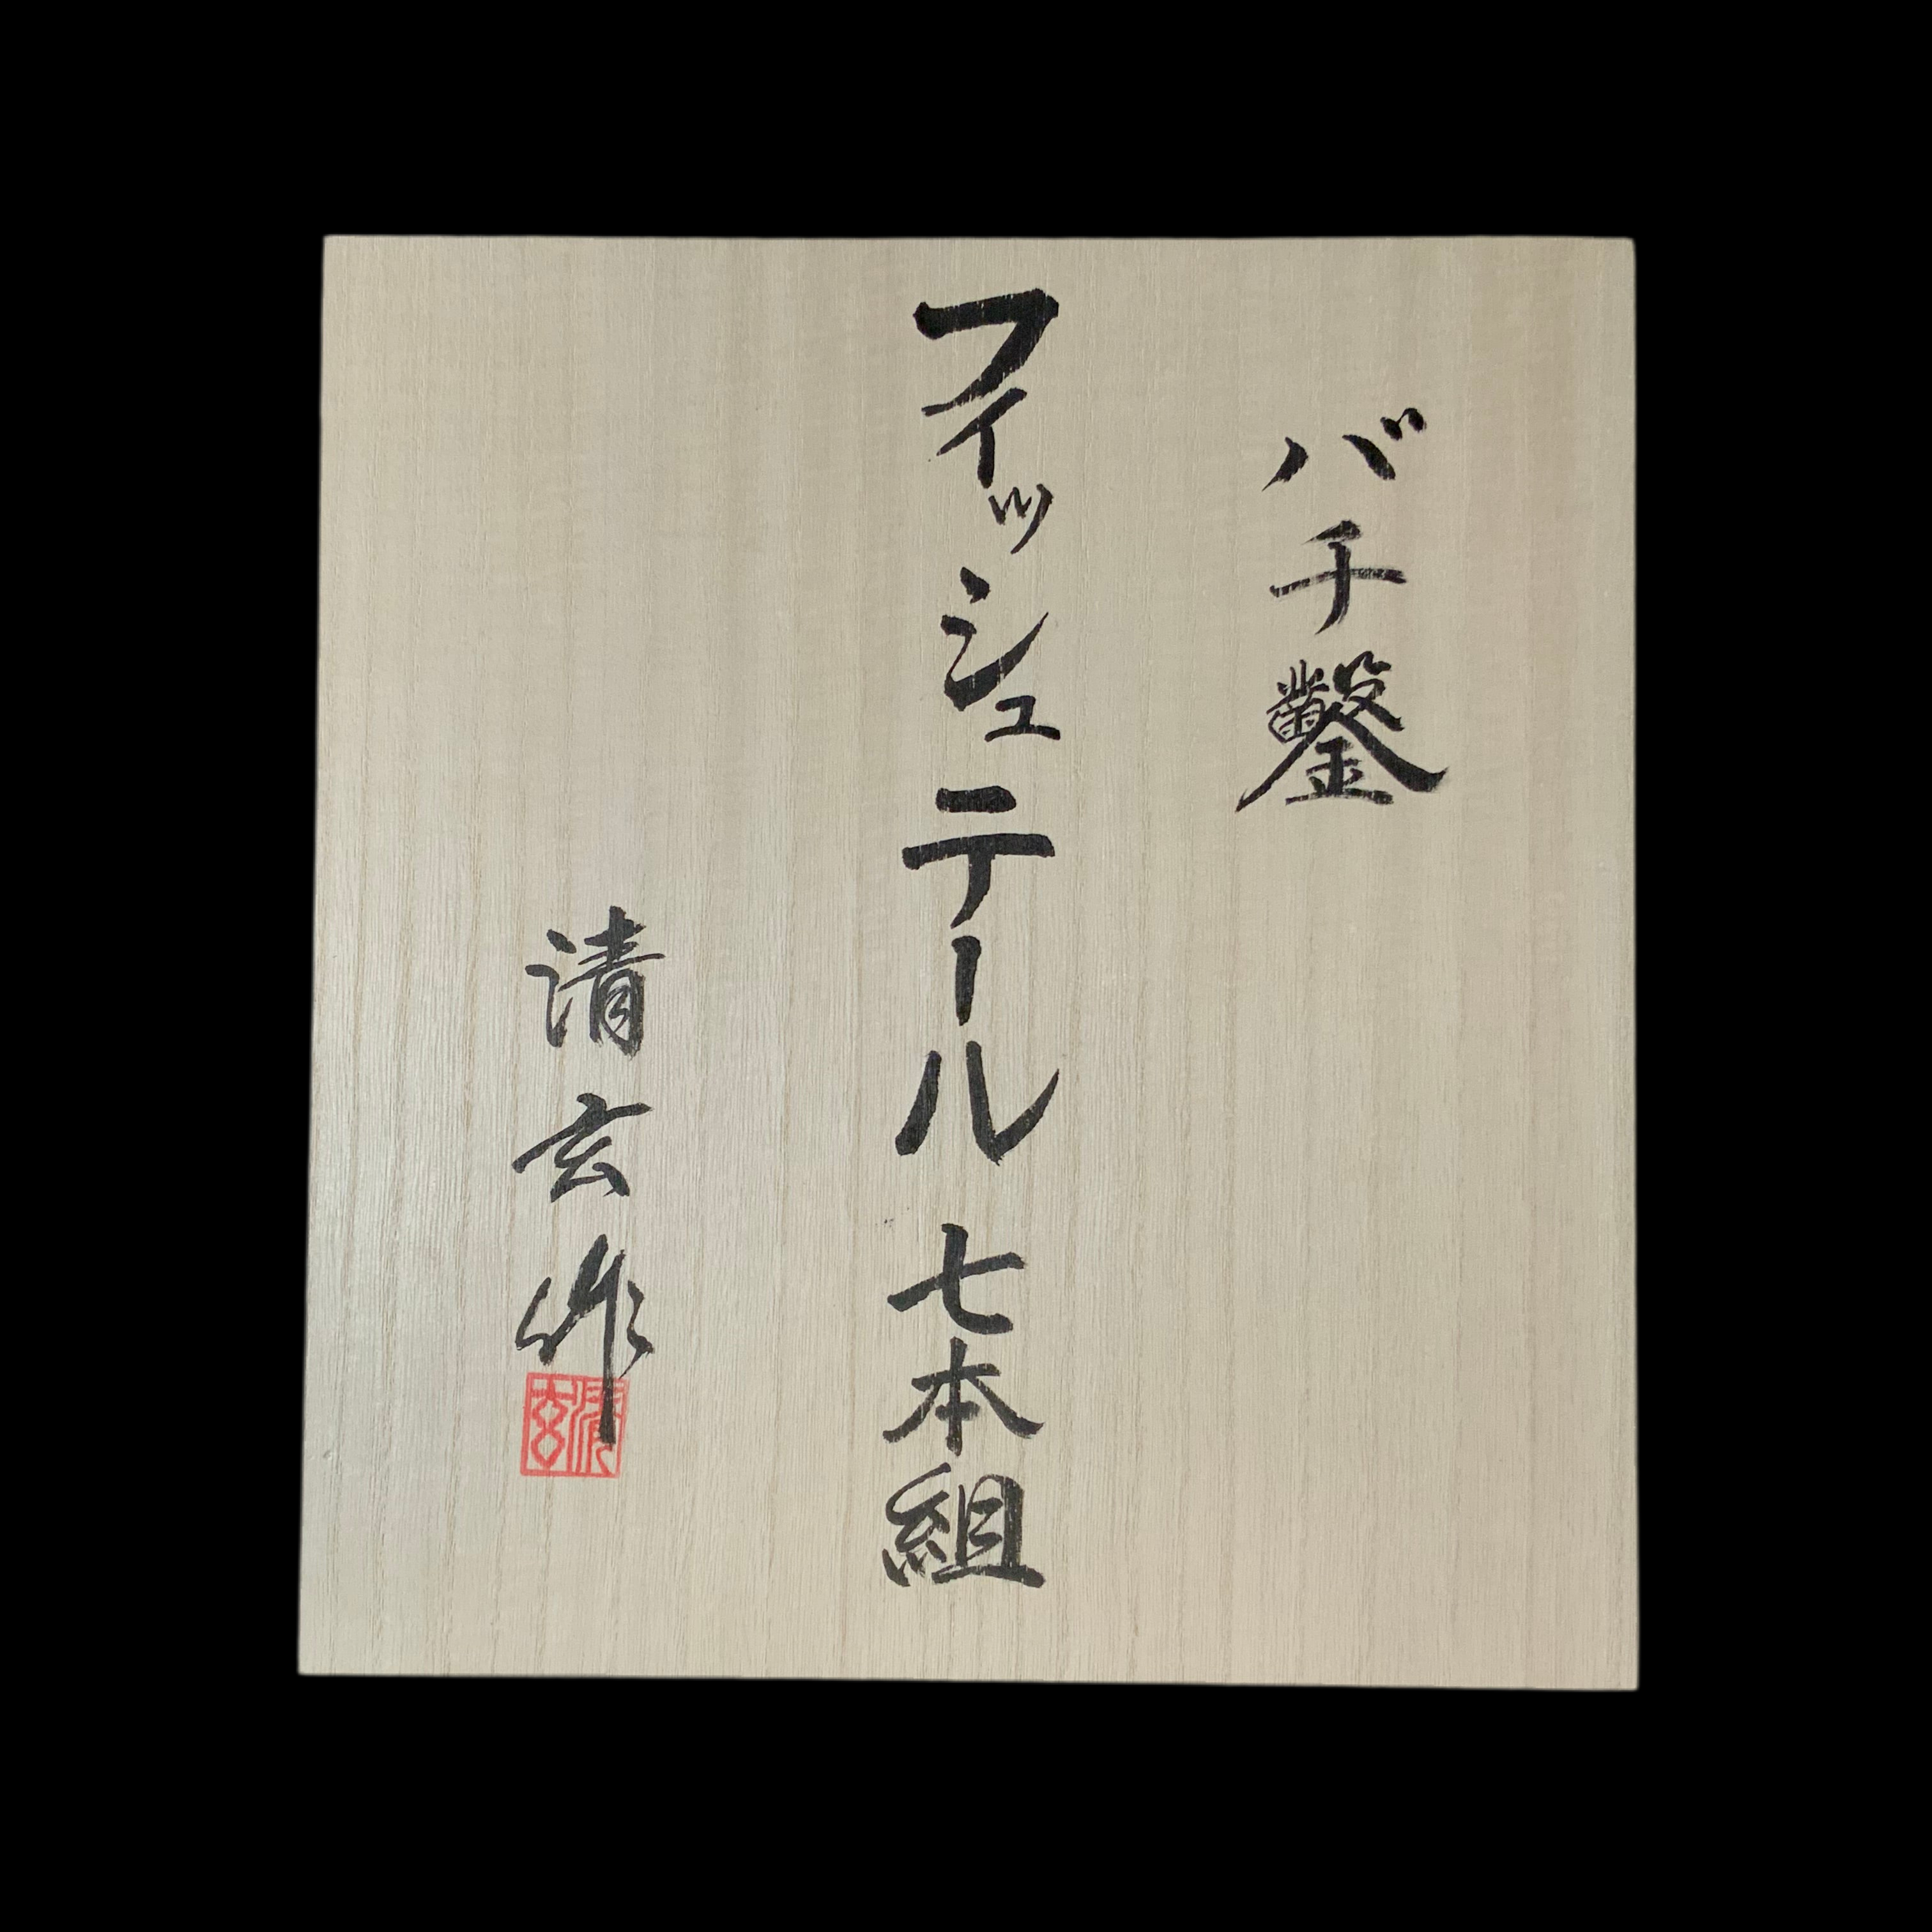 バチ鑿
フィッシュテール 七本組
清玄作
清玄